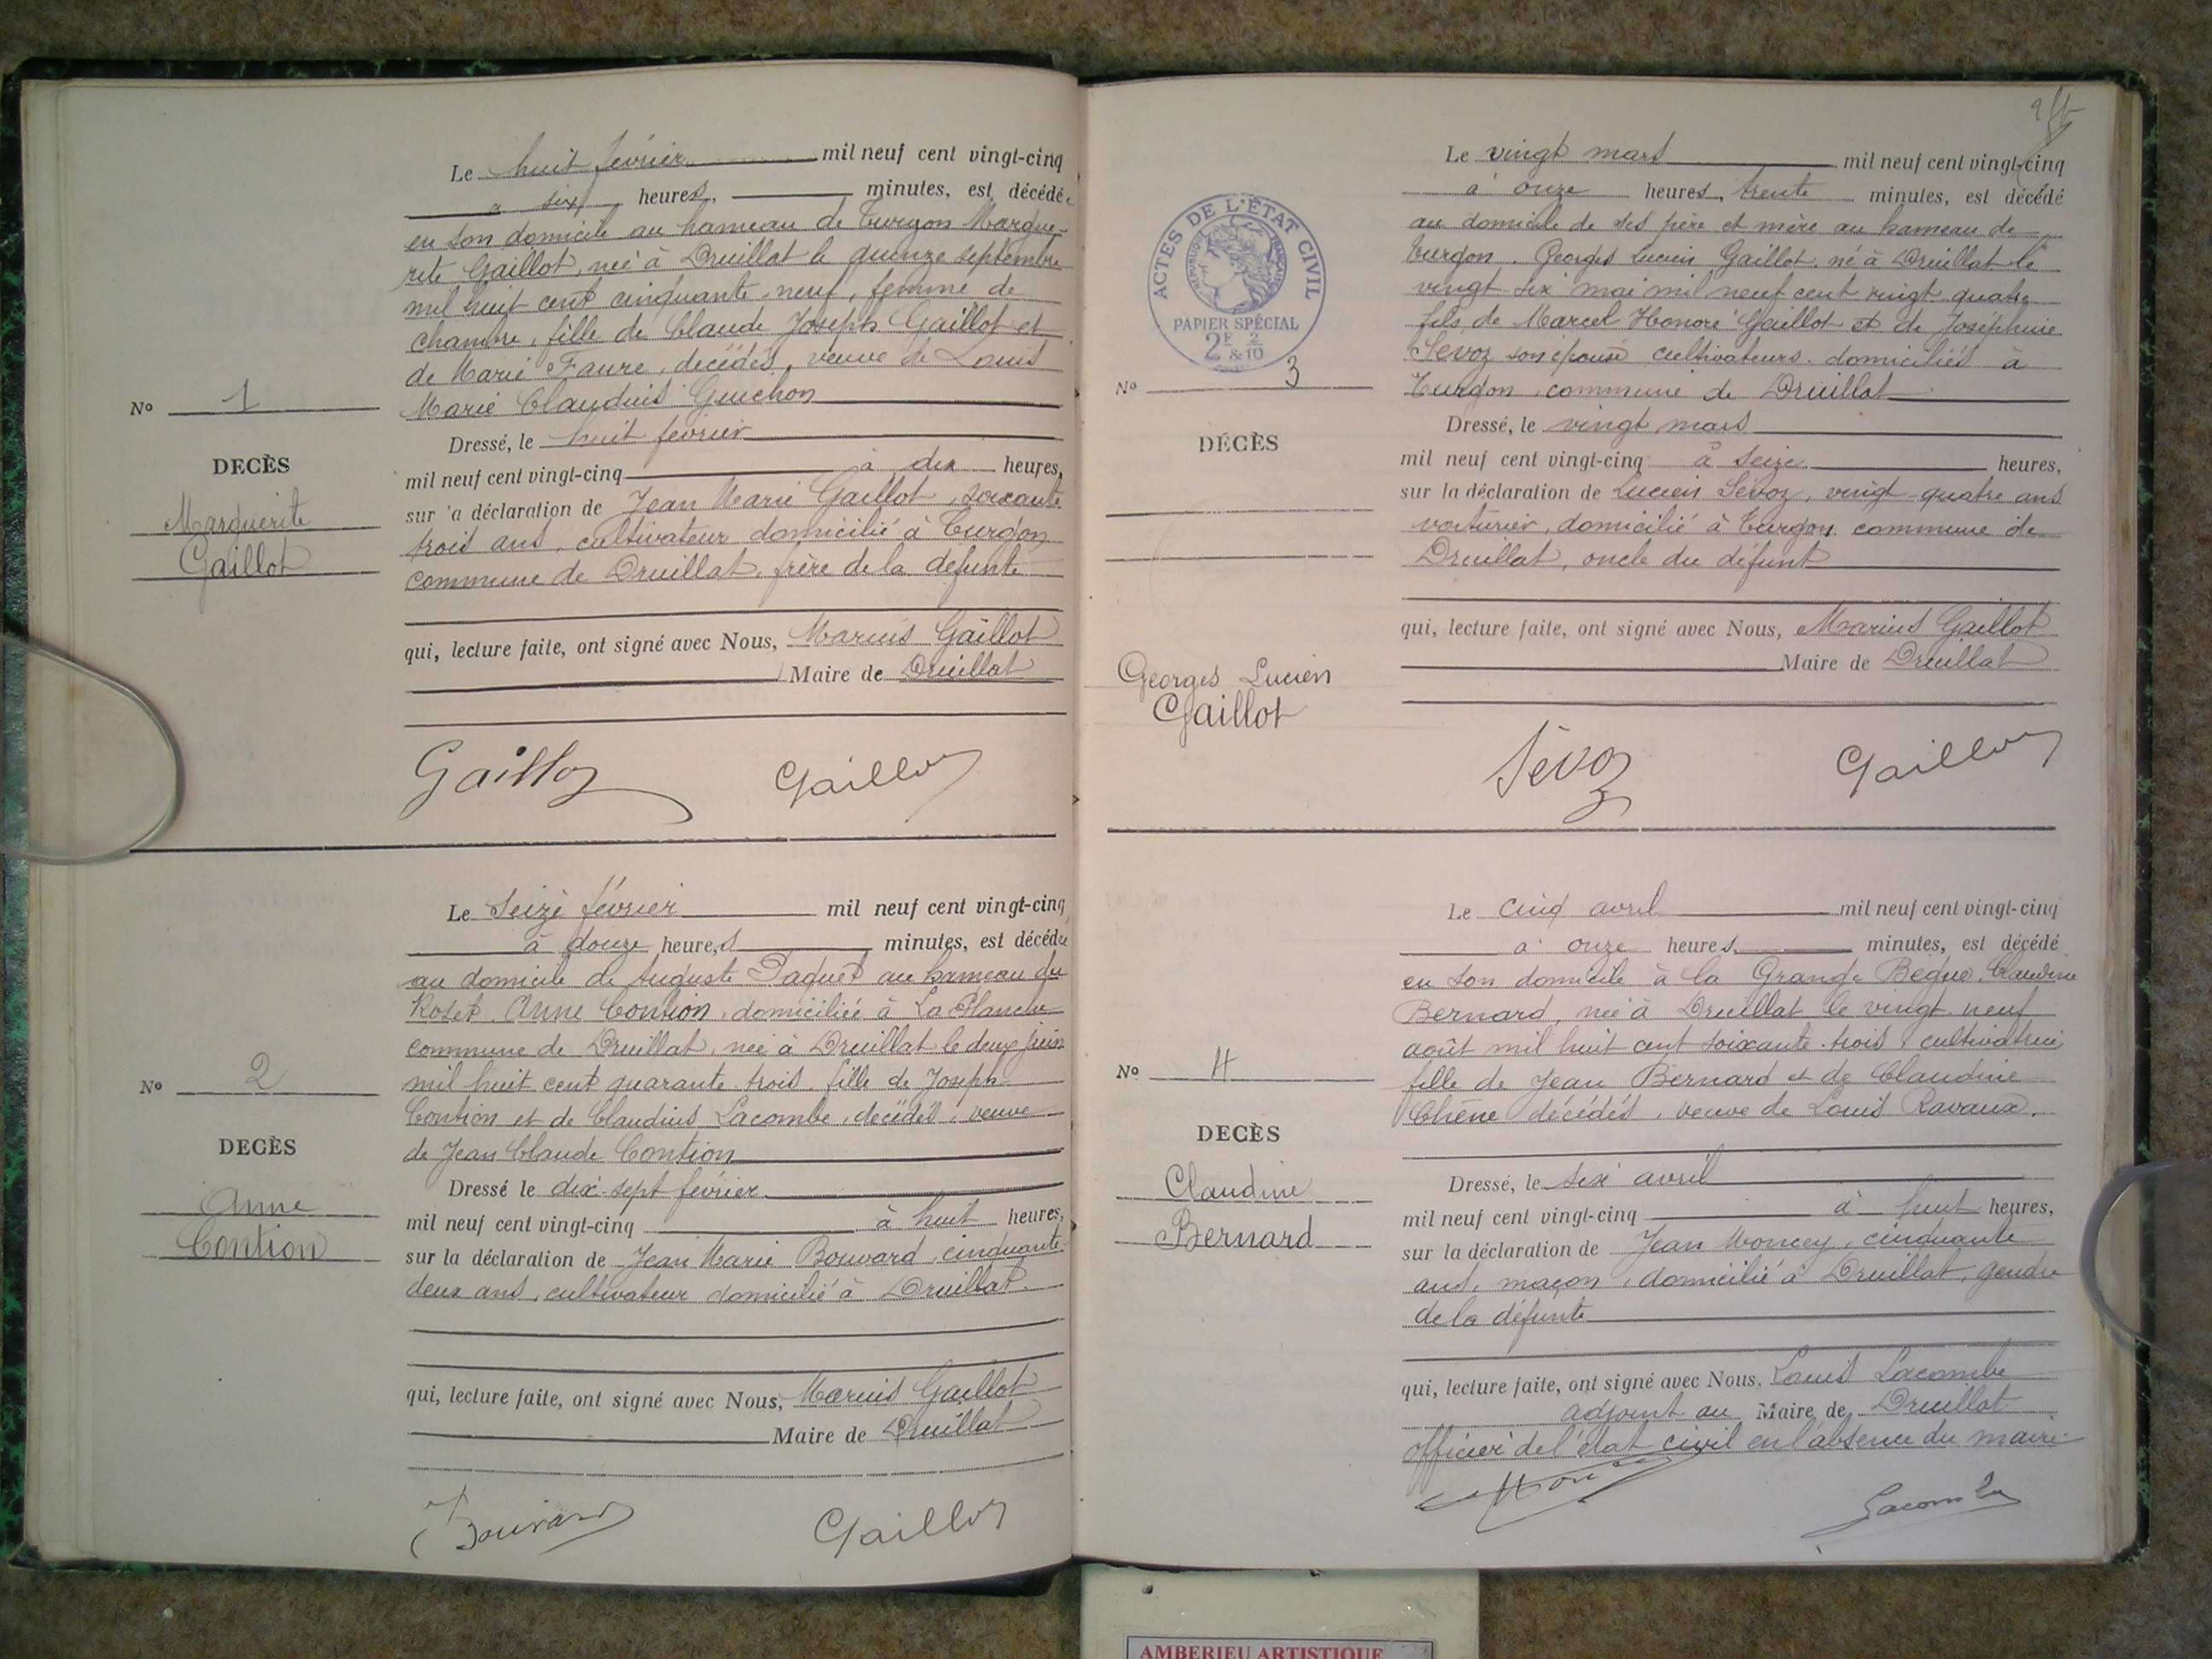 Le huit février mil neuf cent vingt-cinq
à six heures, minutes, est décédée
en son domicile au hameau de Turgon Margue-
rite Gaillot, née à Druillat le quinze septembre
mil huit cent cinquante-neuf, femme de
chambre, fille de Claude Joseph Gaillot et
de Marie Faure, décédés, veuve de Louis
Marie Claudius Guichon
No 1
DECÈS
Marguerite
Gaillot
Dressé, le huit février
mil neuf cent vingt-cinq à dix heures,
sur la déclaration de Jean Marie Gaillot, soixante
trois ans, cultivateur domicilié à Turgon
commune de Druillat, frère de la défunte
qui, lecture faite, ont signé avec Nous, Marius Gaillot
Maire de Druillat
Gaillot Gaillot
Le Seize février mil neuf cent vingt-cinq
à douze heures minutes, est décédée
au domicile de Auguste Paquet au hameau du
Roset Anne Contion, domiciliée à La Planche
commune de Druillat, née à Druillat le deux juin
mil huit cent quarante trois, fille de Joseph
Contion et de Claudius Lacombe, décédés, veuve
de Jean Claude Contion
No 2
DECÈS
Anne
Contion
Dressé le dix-sept février
mil neuf cent vingt-cinq à huit heures,
sur la déclaration de Jean Marie Bouvard, cinquante
deux ans, cultivateur domicilié à Druillat
qui, lecture faite, ont signé avec Nous, Marius Gaillot
Maire de Druillat
Bouvard Gaillot
Le vingt mars mil neuf cent vingt-cinq
à onze heures, trente minutes, est décédé
au domicile de ses père et mère au hameau de
Turgon. Georges Lucien Gaillot, né à Druillat le
vingt-six mai mil neuf cent vingt quatre
fils de Marcel Honoré Gaillot et de Joséphine
Sevoz son épouse cultivateurs domiciliés à
Turgon, commune de Druillat
ACTES DE L'ÉTAT CIVIL
RÉPUBLIQUE FRANÇAISE
PAPIER SPÉCIAL
2F 2
&10
No 3
DÉCÈS
Georges Lucien
Gaillot
Dressé, le vingt mars
mil neuf cent vingt-cinq à seize heures,
sur la déclaration de Lucien Sévoz, vingt-quatre ans
voiturier, domicilié à Turgon commune de
Druillat, oncle du défunt
qui, lecture faite, ont signé avec Nous, Marius Gaillot
Maire de Druillat
Sévoz Gaillot
Le cinq avril mil neuf cent vingt-cinq
à onze heures minutes, est décédé
en son domicile à la Grange Bègue Claudine
Bernard, née à Druillat le vingt neuf
août mil huit cent soixante-trois, cultivatrice,
fille de Jean Bernard et de Claudine
Chêne décédés, veuve de Louis Ravaux.
No 4
DECÈS
Claudine
Bernard
Dressé, le six avril
mil neuf cent vingt-cinq à huit heures,
sur la déclaration de Jean Moncey, cinquante
ans, maçon, domicilié à Druillat, gendre
de la défunte
qui, lecture faite, ont signé avec Nous, Louis Lacombe
adjoint au Maire de Druillat
officier de l'état civil en l'absence du maire
Lacombe
AMBERIEU ARTISTIQUE